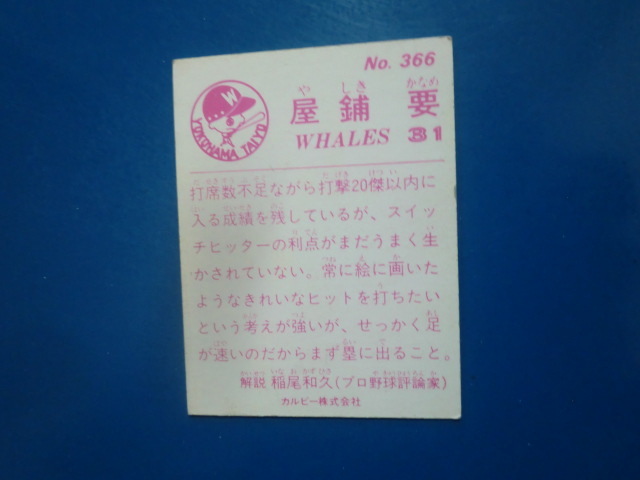 No. 366
W
YOKOHAMA TAIYO
や しき かなめ
屋鋪 要
WHALES 31
打席数不足ながら打撃20傑以内に
入る成績を残しているが、スイッ
チヒッターの利点がまだうまく生
かされていない。常に絵に画いた
ようなきれいなヒットを打ちたい
という考えが強いが、せっかく足
が速いのだからまず塁に出ること。
解説 稲尾和久(プロ野球評論家)
カルビー株式会社